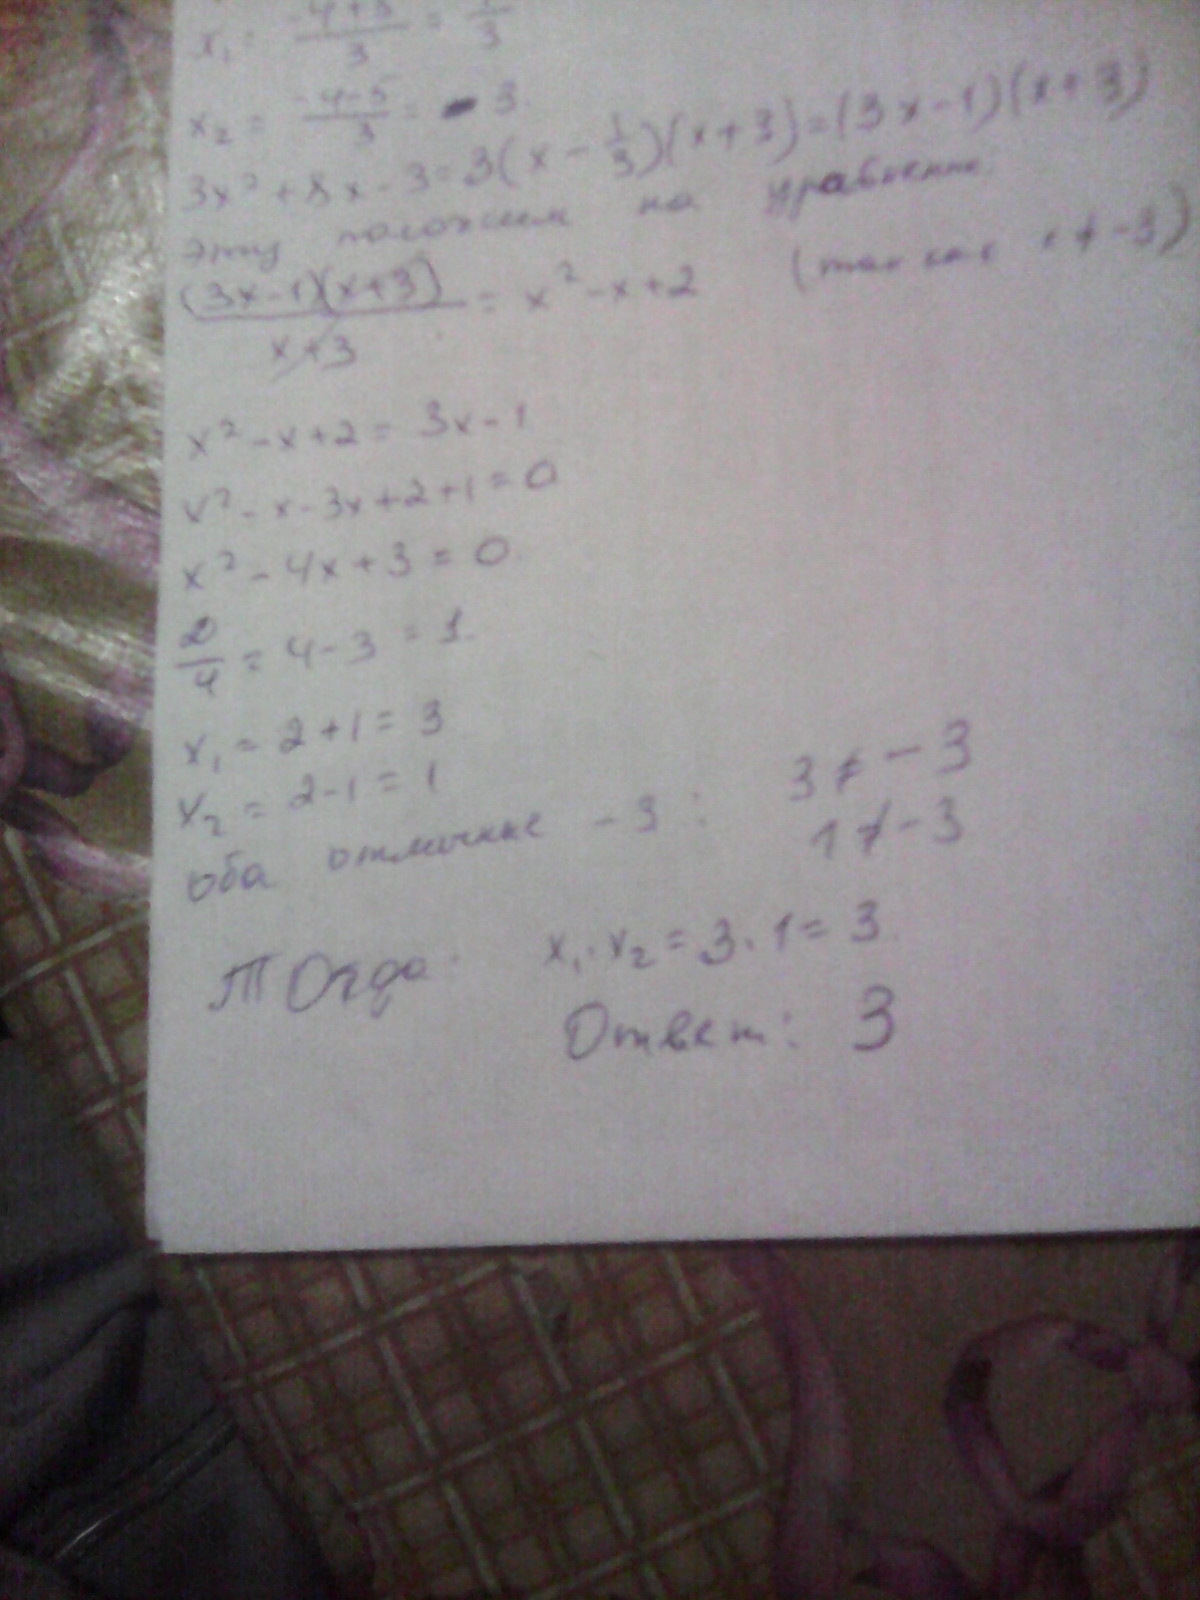 x₁ = (-4+5)/3 = 1/3
x₂ = (-4-5)/3 = -3.
3x² + 8x - 3 = 3(x - 1/3)(x+3) = (3x-1)(x+3)
эту положим на уравнение.
(3x-1)(x+3)/(x+3) = x² - x + 2 (так как x ≠ -3)
x² - x + 2 = 3x - 1
x² - x - 3x + 2 + 1 = 0
x² - 4x + 3 = 0.
D/4 = 4 - 3 = 1.
x₁ = 2 + 1 = 3
x₂ = 2 - 1 = 1
оба отличные -3 : 3 ≠ -3
1 ≠ -3
Тогда. x₁ · x₂ = 3 · 1 = 3.
Ответ: 3